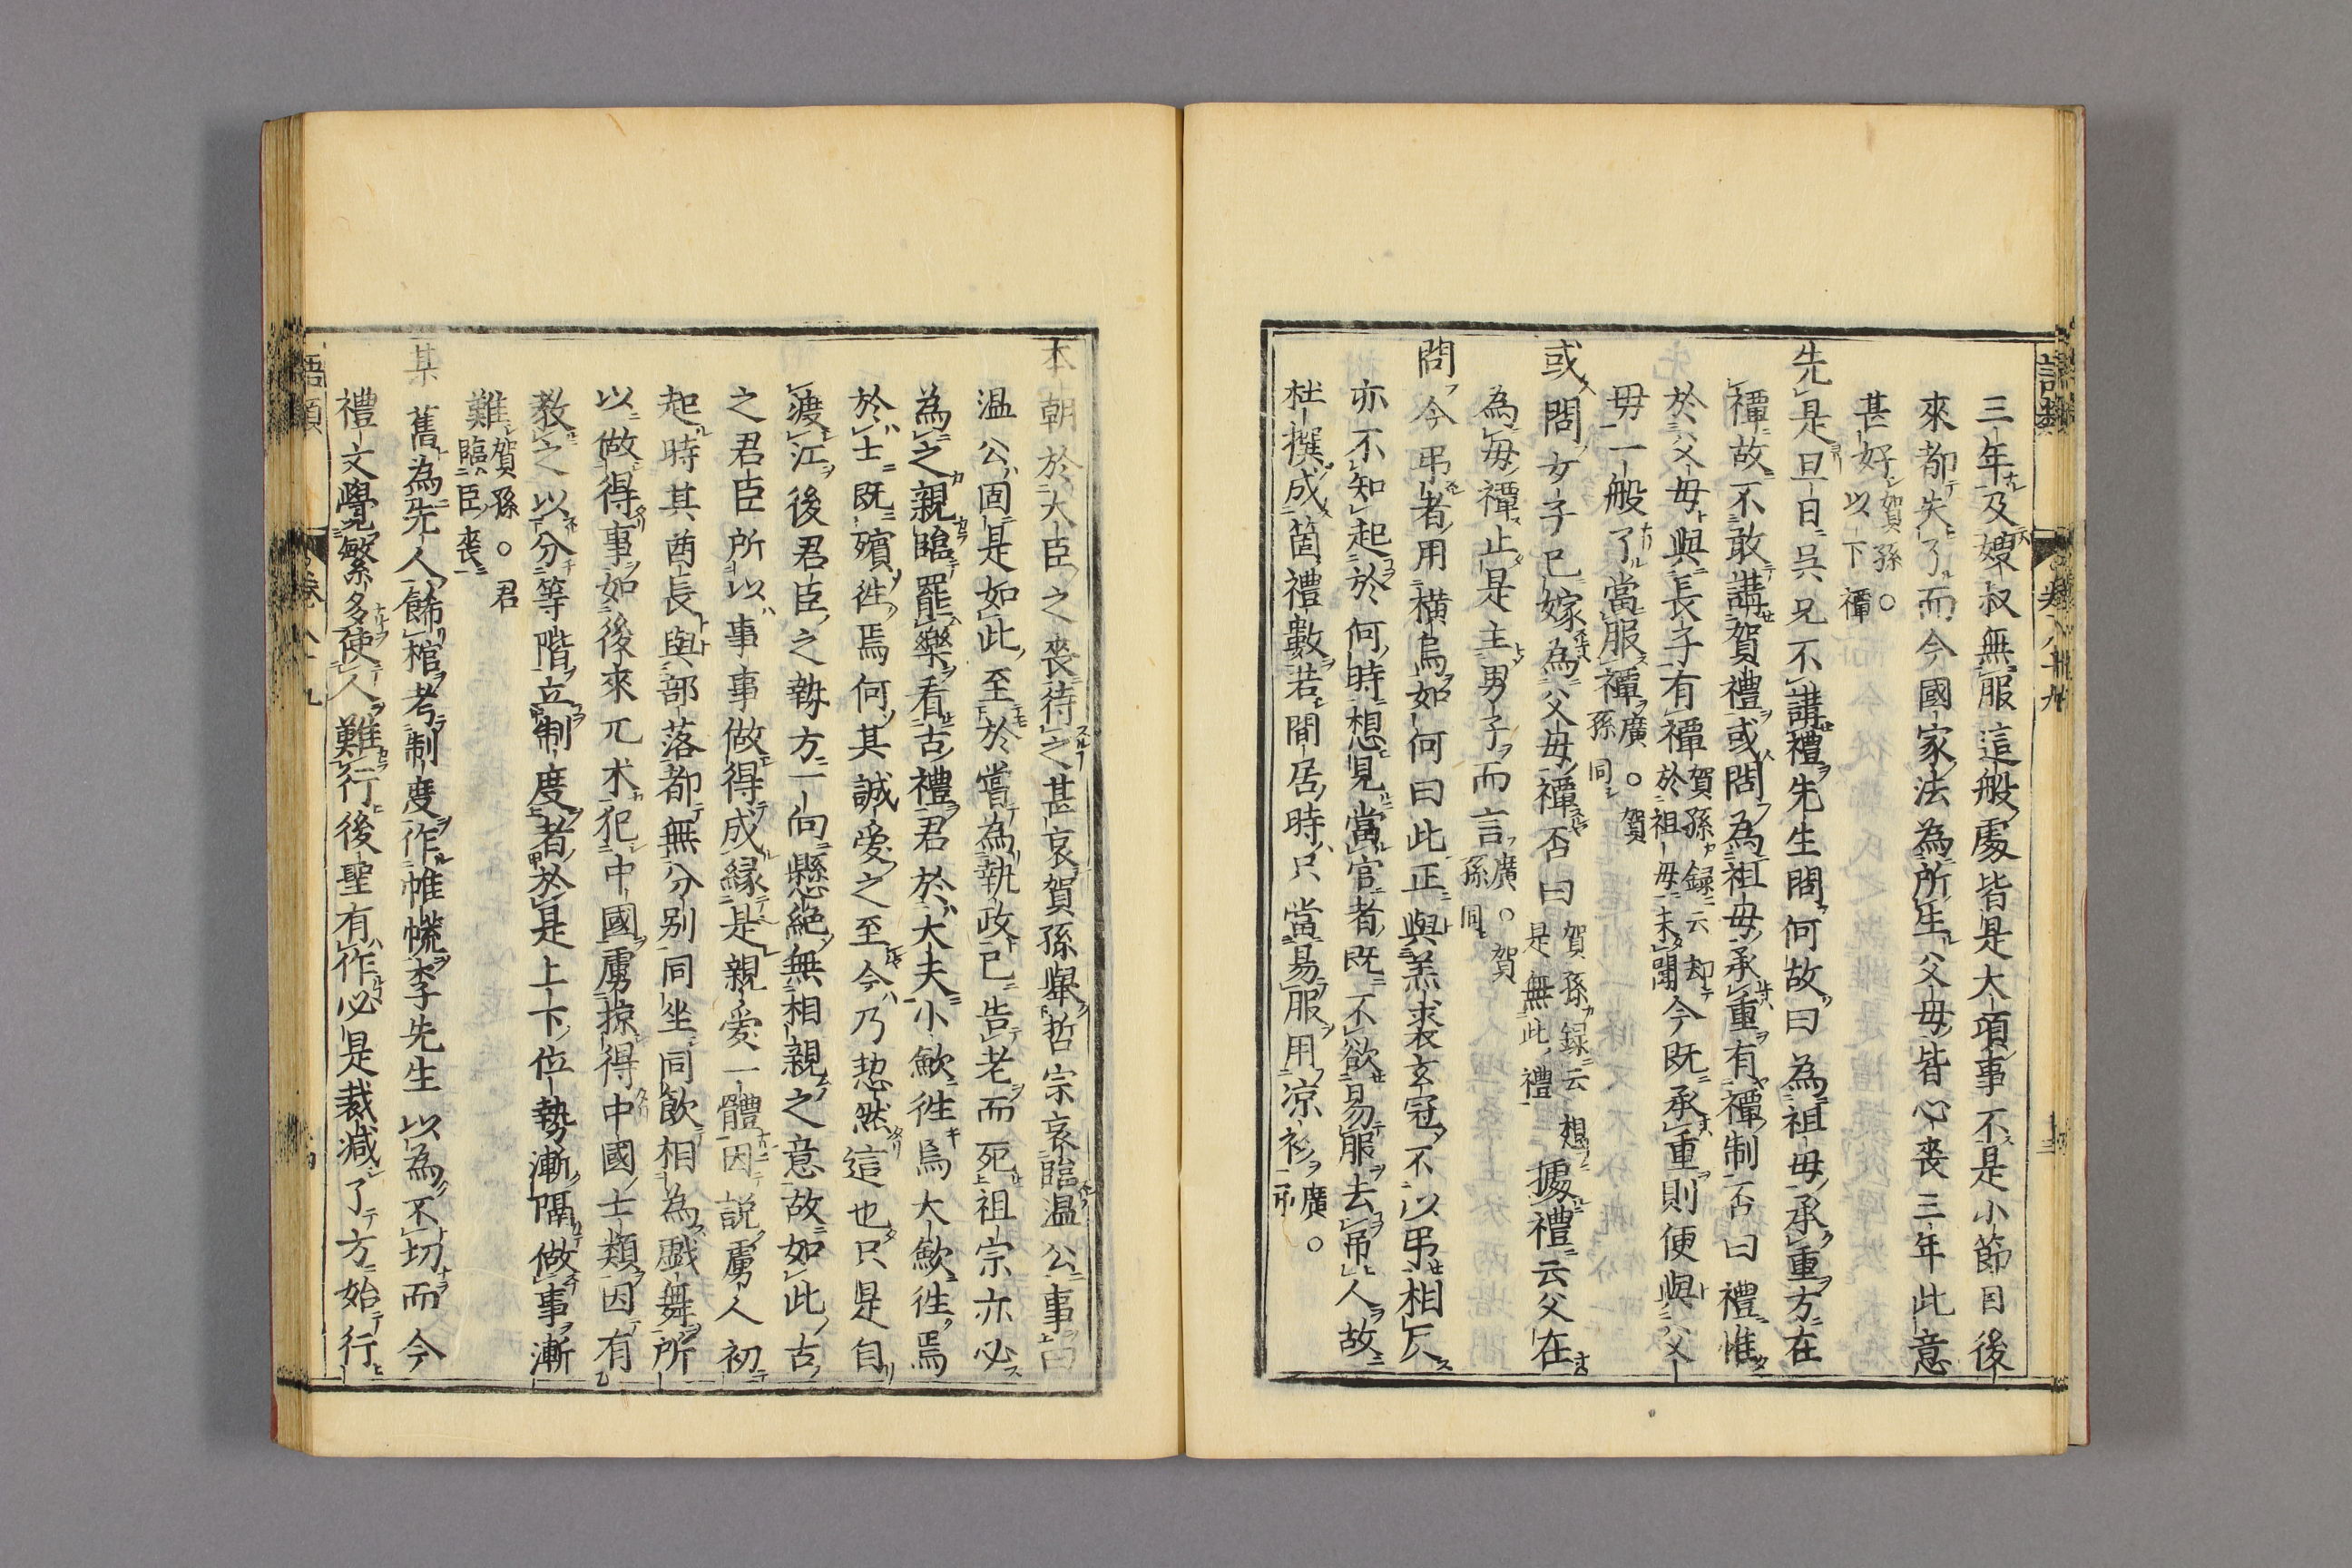 語類
卷八十九
三年及嫂叔無服這般處皆是大項事不是小節目後
來都失了而今國家法為所生父母皆心喪三年此意
甚好賀孫○以下禫
先是旦日吳兄不講禮先生問何故曰為祖母承重方在
禫故不敢講賀禮或問為祖母承重有禫制否曰禮惟
於父母與長子有禫賀孫録云却於祖母未聞今既承重則便與父
母一般了當服禫廣○賀孫同
或問女子已嫁為父母禫否曰賀孫録云想是無此禮據禮云父在
為母禫止是主男子而言廣○賀孫同
問今弔者用橫烏如何曰此正與羔裘玄冠不以弔相反
亦不知起於何時想見當官者既不欲易服去弔人故
杜撰成箇禮數若閒居時只當易服用凉衫廣○祔
本朝於大臣之喪待之甚哀賀孫舉哲宗哀臨温公事曰
温公固是如此至於嘗為執政已告老而死祖宗亦必
為之親臨罷樂看古禮君於大夫小歛徃焉大歛徃焉
於士既殯徃焉何其誠愛之至今乃恝然這也只是自
渡江後君臣之勢方一向懸絶無相親之意故如此古
之君臣所以事事做得成縁是親愛一體因説虜人初
起時其酋長與部落都無分别同坐同飲相為戲舞所
以做得事如後來兀朮犯中國虜掠得中國士類因有
教之以分等階立制度者於是上下位勢漸隔做事漸
難賀孫○君臨臣喪
某舊為先人飾棺考制度作帷幌李先生以為不切而今
禮文覺繁多使人難行後聖有作必是裁減了方始行
語類
卷八十九